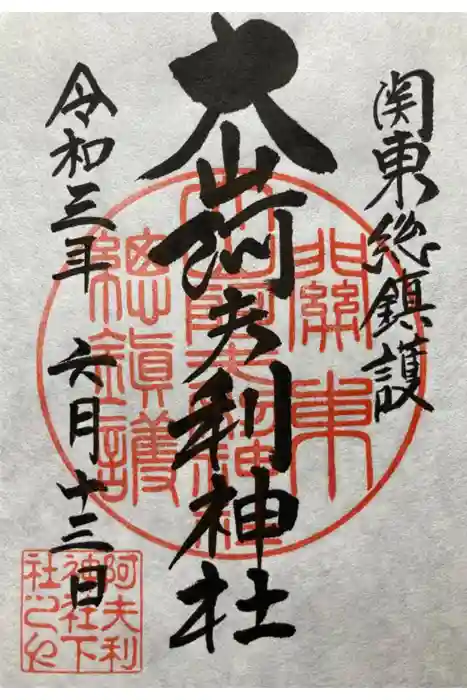 関東総鎮護
大山阿夫利神社
令和三年 六月十三日
關東
總鎭護
阿夫利
神社下
社之印